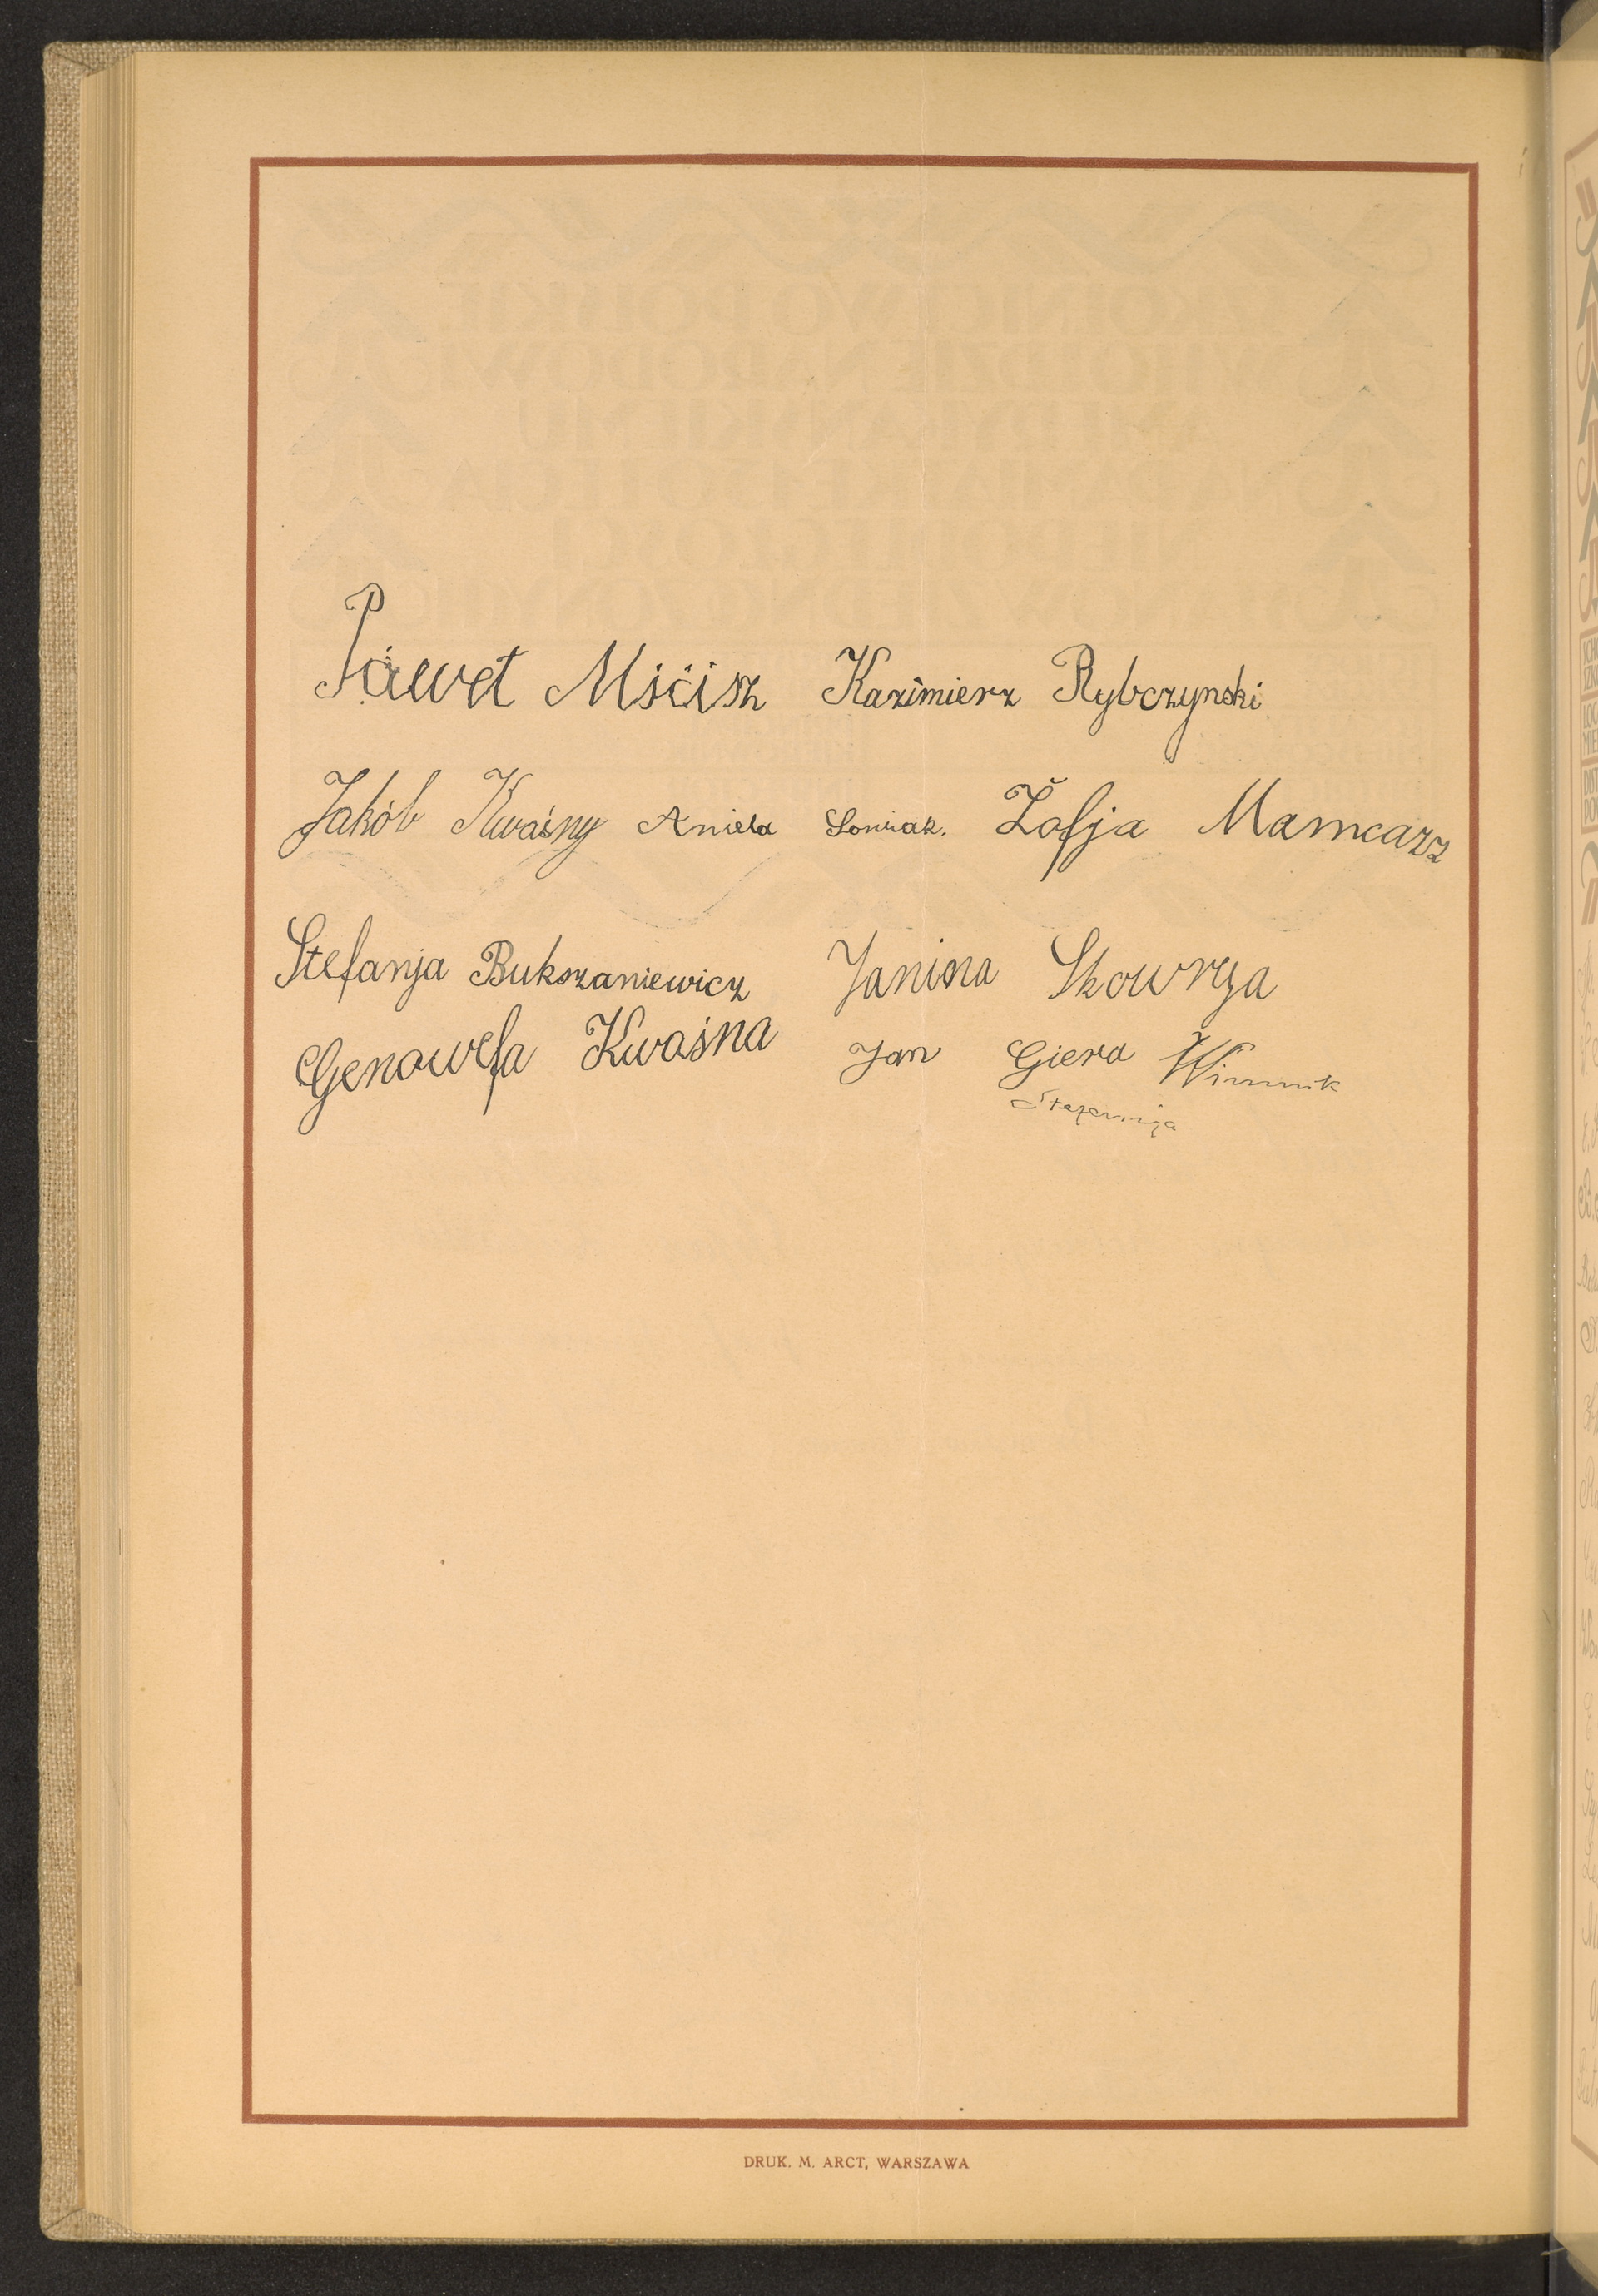 Paweł Mścisz Kazimierz Rybczynski
Jakób Kwaśny Aniela Soniak. Zofja Mamcarz
Stefanja Bukszaniewicz Janina Skowrya
Genowefa Kwaśna Jan Giera Winnik
Stefanija
DRUK. M. ARCT, WARSZAWA